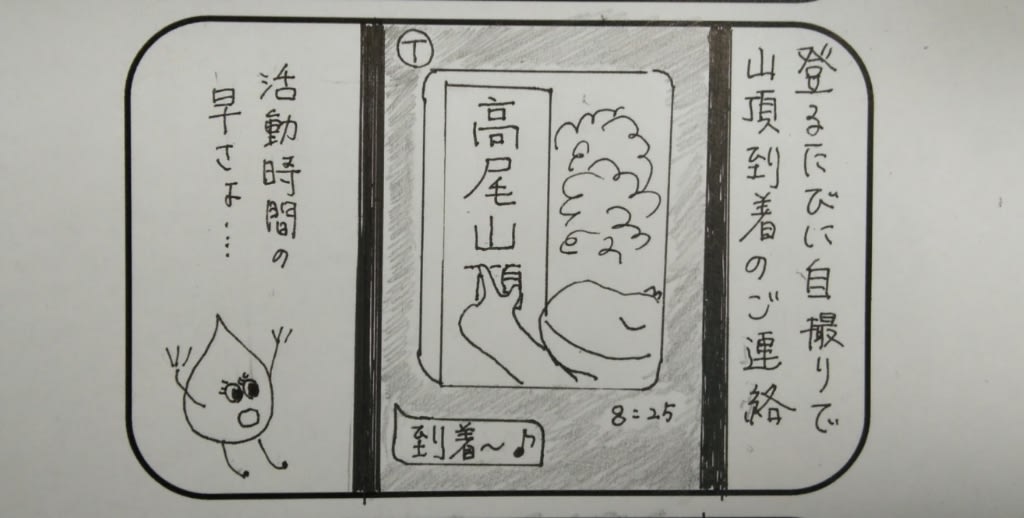 登るたびに自撮りで
山頂到着のご連絡
T
高尾山頂
8:25
到着〜♪
活動時間の
早さよ…